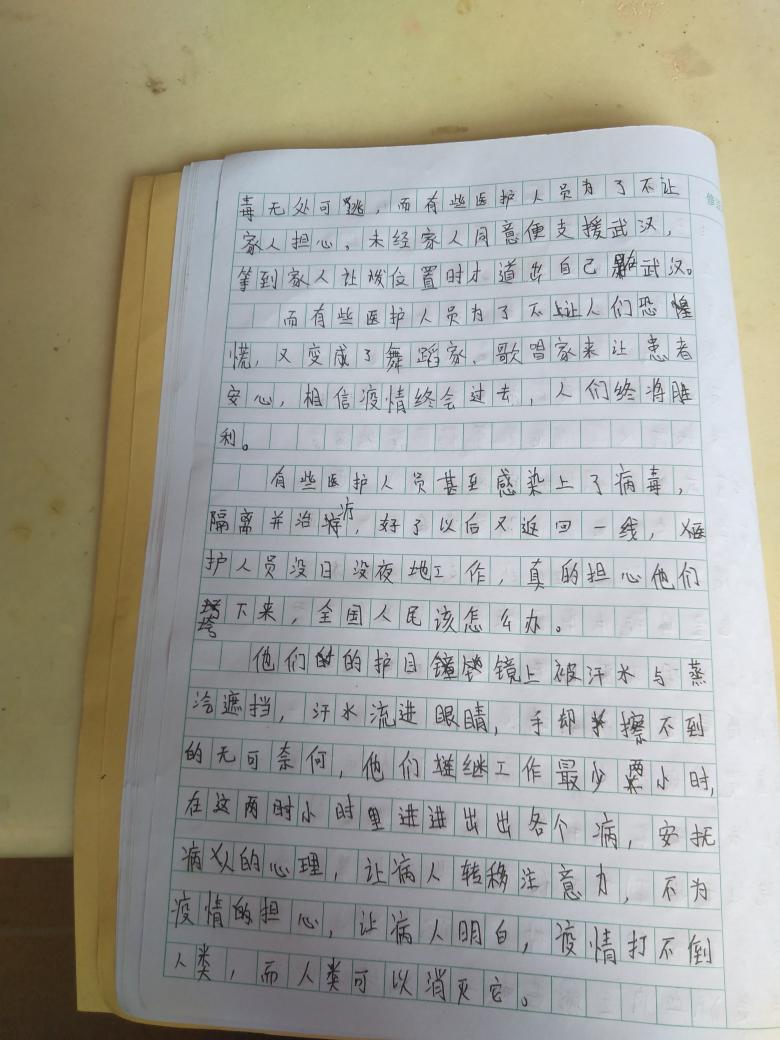 毒无处可逃，而有些医护人员为了不让
家人担心、未经家人同意便支援武汉，
等到家人让拨位置时才道出自己在武汉。
而有些医护人员为了不让人们恐惶
慌，又变成了舞蹈家、歌唱家来让患者
安心，相信疫情终会过去，人们终将胜
利。
有些医护人员甚至感染上了病毒，
隔离并治疗，好了以后又返回一线，医
护人员没日没夜地工作，真的担心他们
垮下来，全国人民该怎么办。
他们的护目镜上被汗水与蒸
汽遮挡，汗水流进眼睛，手却擦不到
的无可奈何，他们继继工作最少两小时，
在这两时小时里进进出出各个病，安抚
病人的心理，让病人转移注意力，不为
疫情的担心，让病人明白，疫情打不倒
人类，而人类可以消灭它。